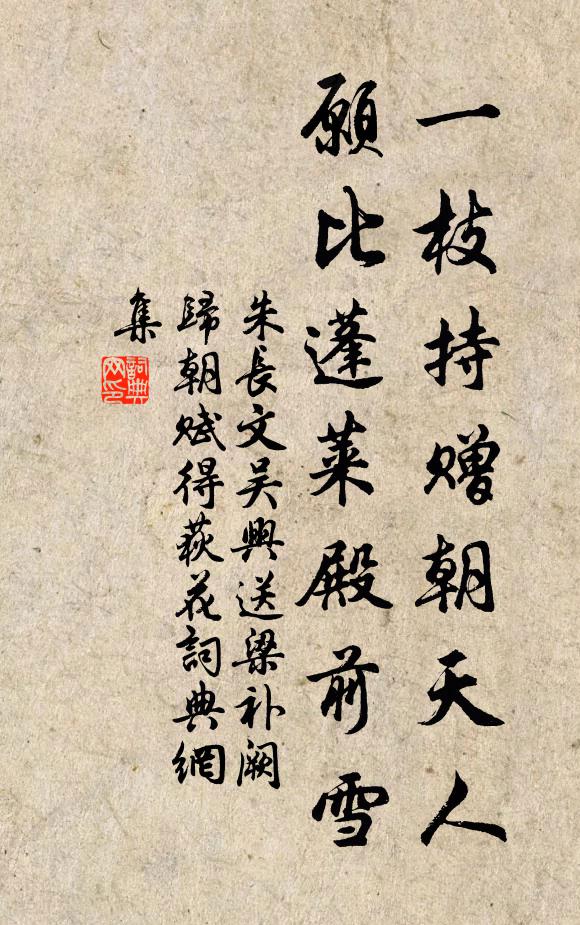 一枝持赠朝天人
願比蓬莱殿前雪
朱長文吴興送梁补阙
歸朝赋得荻花詞典網
集
詞典
网印